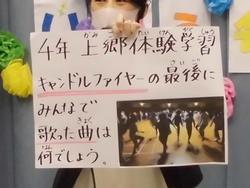 4年 上郷体験学習
キャンドルファイヤーの最後に
みんなで
歌った曲は
何でしょう。